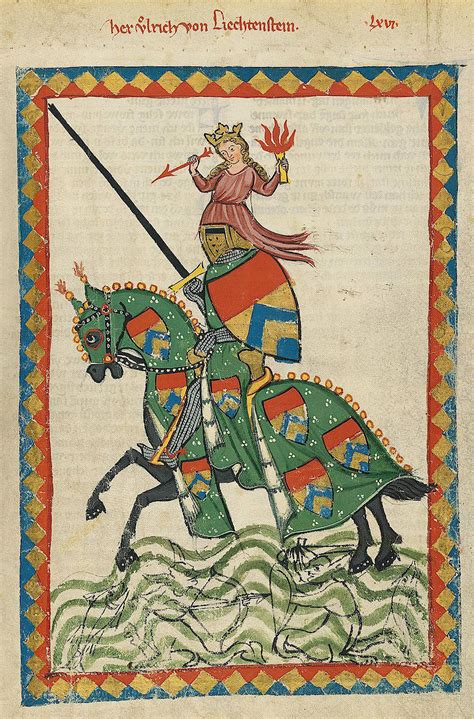 her vͦlrich von Liechtenstein.
lxvi